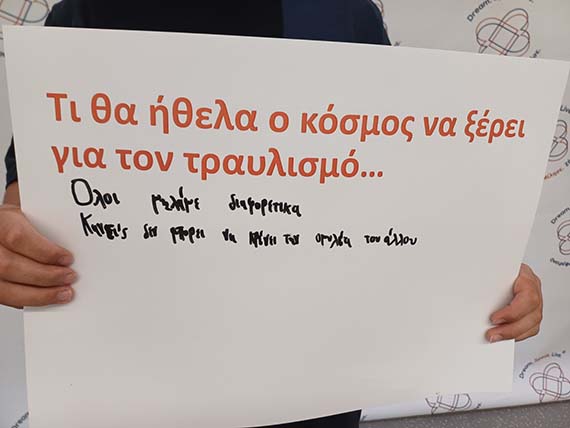 Τι θα ήθελα ο κόσμος να ξέρει
για τον τραυλισμό...
Όλοι μιλάμε διαφορετικά
Κανείς δεν μπορεί να κρίνει την ομιλία του άλλου
Dream. Speak. Live.